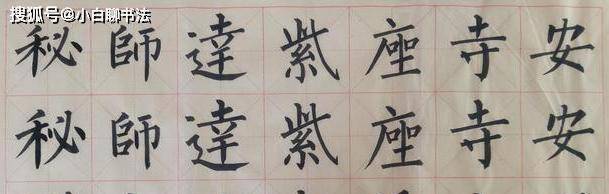 搜狐号@小白聊书法
秘師達紫座寺安
秘師達紫座寺安